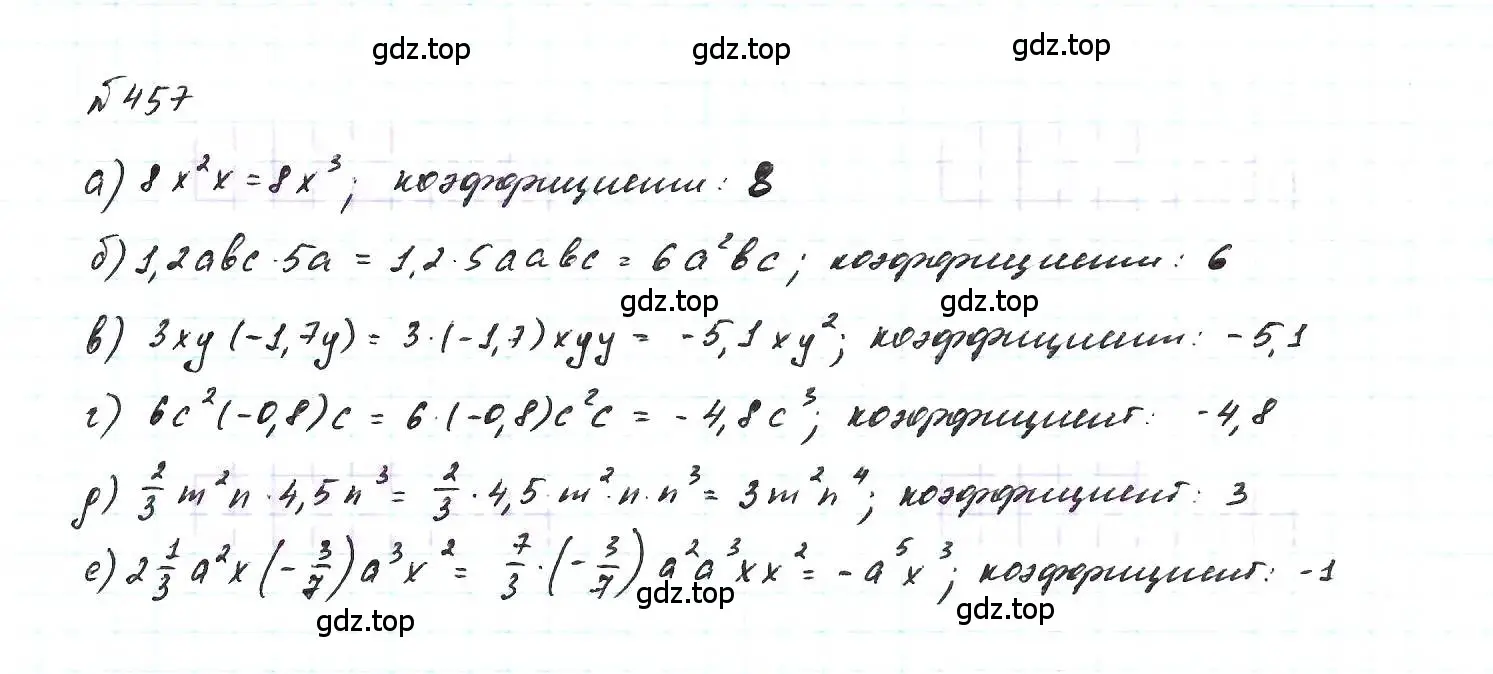 gdz.top gdz.top gdz.top
№457
а) 8x²x = 8x³; коэффициент: 8
б) 1,2abc · 5a = 1,2 · 5aabc = 6a²bc; коэффициент: 6
gdz.top gdz.top
в) 3xy (-1,7y) = 3 · (-1,7) xyy = -5,1xy²; коэффициент: -5,1
г) 6c² (-0,8)c = 6 · (-0,8)c²c = -4,8c³; коэффициент: -4,8
д) 2/3 m²n · 4,5n³ = 2/3 · 4,5 m² · n · n³ = 3m²n⁴; коэффициент: 3
е) 2 1/3 a²x (-3/7) a³x² = 7/3 · (-3/7) a²a³xx² = -a⁵x³; коэффициент: -1
gdz.top gdz.top gdz.top